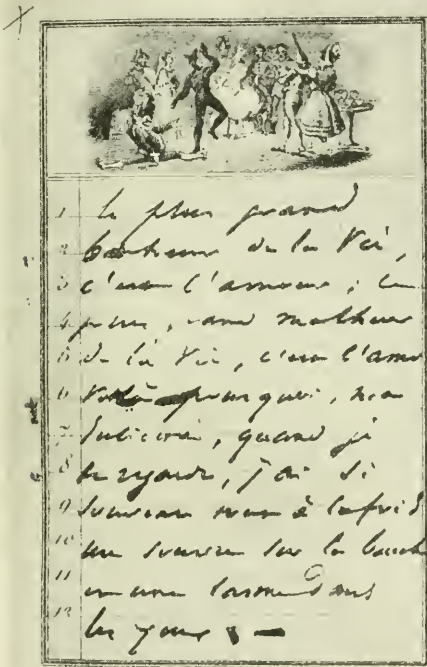 1 Le plus grand
2 bonheur de la vie,
3 c'est l'amour; le
4 plus grand malheur
5 de la vie, c'est l'amour
6 Voilà pourquoi, ma
7 quand je
8 te regarde, j'ai si
9 souvent à la fois
10 un sourire sur la bouche
11 et une larme dans
12 les yeux